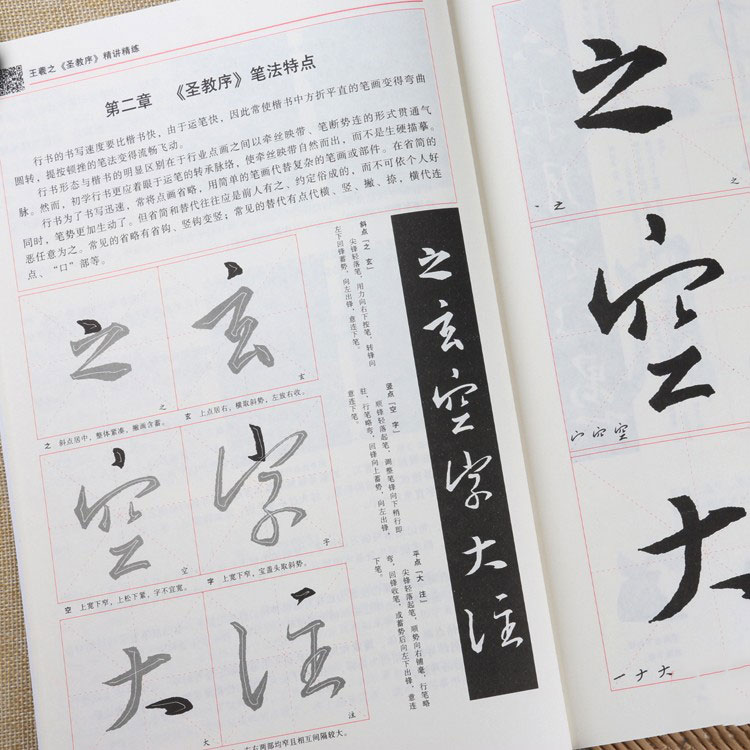 王羲之《圣教序》精讲精练
第二章 《圣教序》笔法特点
行书的书写速度要比楷书快，由于运笔快，因此常使楷书中方折平直的笔画变得弯曲
圆转，提按顿挫的笔法变得流畅飞动。
行书形态与楷书的明显区别在于行业点画之间以牵丝映带、笔断势连的形式贯通气
脉。然而，初学行书更应着眼于运笔的转承脉络，使牵丝映带自然而出，而不是生硬描摹。
行书为了书写迅速，常将点画省略，用简单的笔画代替复杂的笔画或部件。在省简的
同时，笔势更加生动了。但省简和替代往往应是前人有之、约定俗成的，而不可依个人好
恶任意为之。常见的省略有省钩、竖钩变竖，常见的替代有点代横、竖、撇、捺，横代连
点、“口”部等。
之
玄
之
玄
之 斜点居中，整体紧凑，撇画含蓄。
玄 上点居右，横取斜势，左放右收。
空
字
空
字
空 上宽下窄，上松下紧，字不宜宽。
字 上宽下窄，宝盖头取斜势。
大
注
大
注
左右两部均窄且相互间隔较大。
斜点「之 玄」
尖锋轻落笔，用力向右下按笔，转锋向
左下回锋蓄势，向左出锋，意连下笔。
竖点「空 字」
顺锋轻落起笔，调整笔锋向下稍行即
驻，行笔略弯，回锋向上蓄势，向左出锋，
意连下笔。
平点「大 注」
尖锋轻落起笔，顺势向右铺毫，行笔略
弯，回锋收笔，或蓄势后向左下出锋，意连
下笔。
之玄空字大注
之
之
空
空
大
大